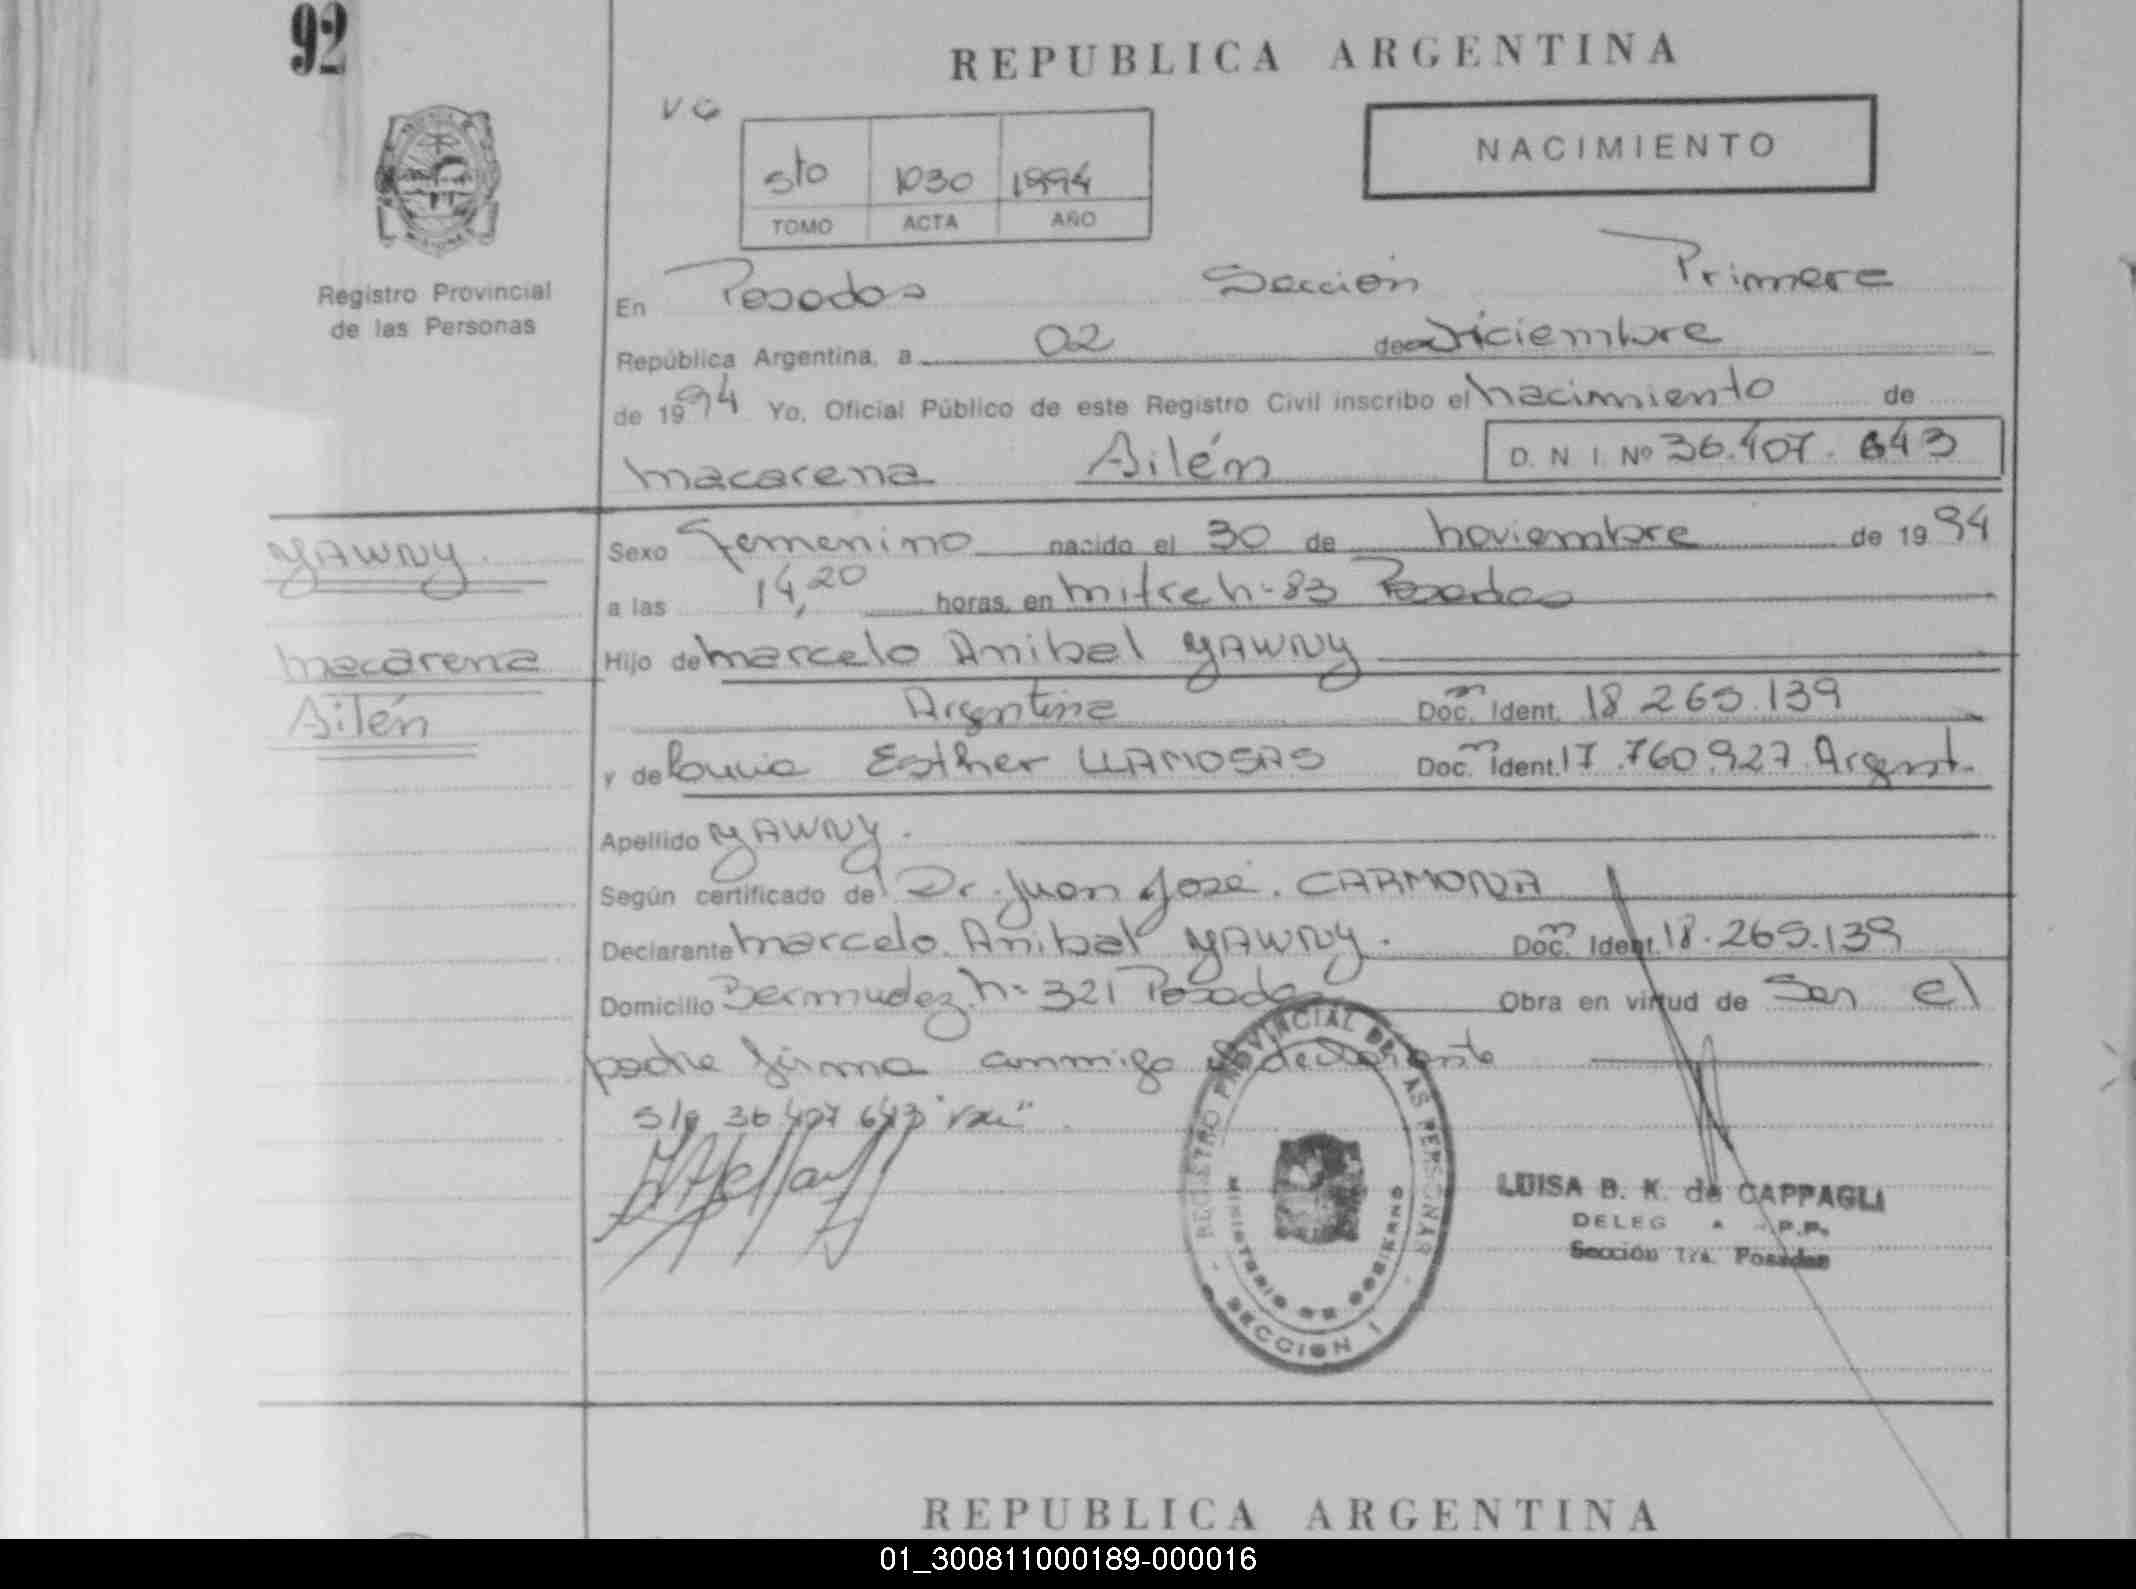 92
REPUBLICA ARGENTINA
VG
NACIMIENTO
5to 1030 1994
TOMO ACTA AÑO
Registro Provincial
de las Personas
En Posadas Sección Primera
República Argentina, a 02 de Diciembre
de 1994 Yo, Oficial Público de este Registro Civil inscribo el nacimiento de
Macarena Ailén D. N I. Nº 36.407.643
YAWNY.
Sexo Femenino nacido el 30 de noviembre de 1994
a las 14,20 horas, en Mitre n- 83 Posadas
Macarena
Hijo de Marcelo Anibal YAWNY
Ailén
Argentina Doc. Ident. 18 265.139
y de Esther LLAMOSAS Doc. Ident. 17.760.927 Argent.
Apellido YAWNY.
Según certificado de Dr. Juan José. CARMONA
Declarante Marcelo Anibal YAWNY. Doc. Ident. 18.265.139
Domicilio Bermudez n- 321 Posadas Obra en virtud de Ser el
padre firma conmigo el declarante
S/r 36 407 643 "Vale".
REGISTRO PROVINCIAL DE LAS PERSONAS
MINISTERIO DE GOBIERNO
SECCION 1
LUISA B. K. de CAPPAGLI
DELEG A P.P.
Sección 1ra. Posadas
REPUBLICA ARGENTINA
01_300811000189-000016